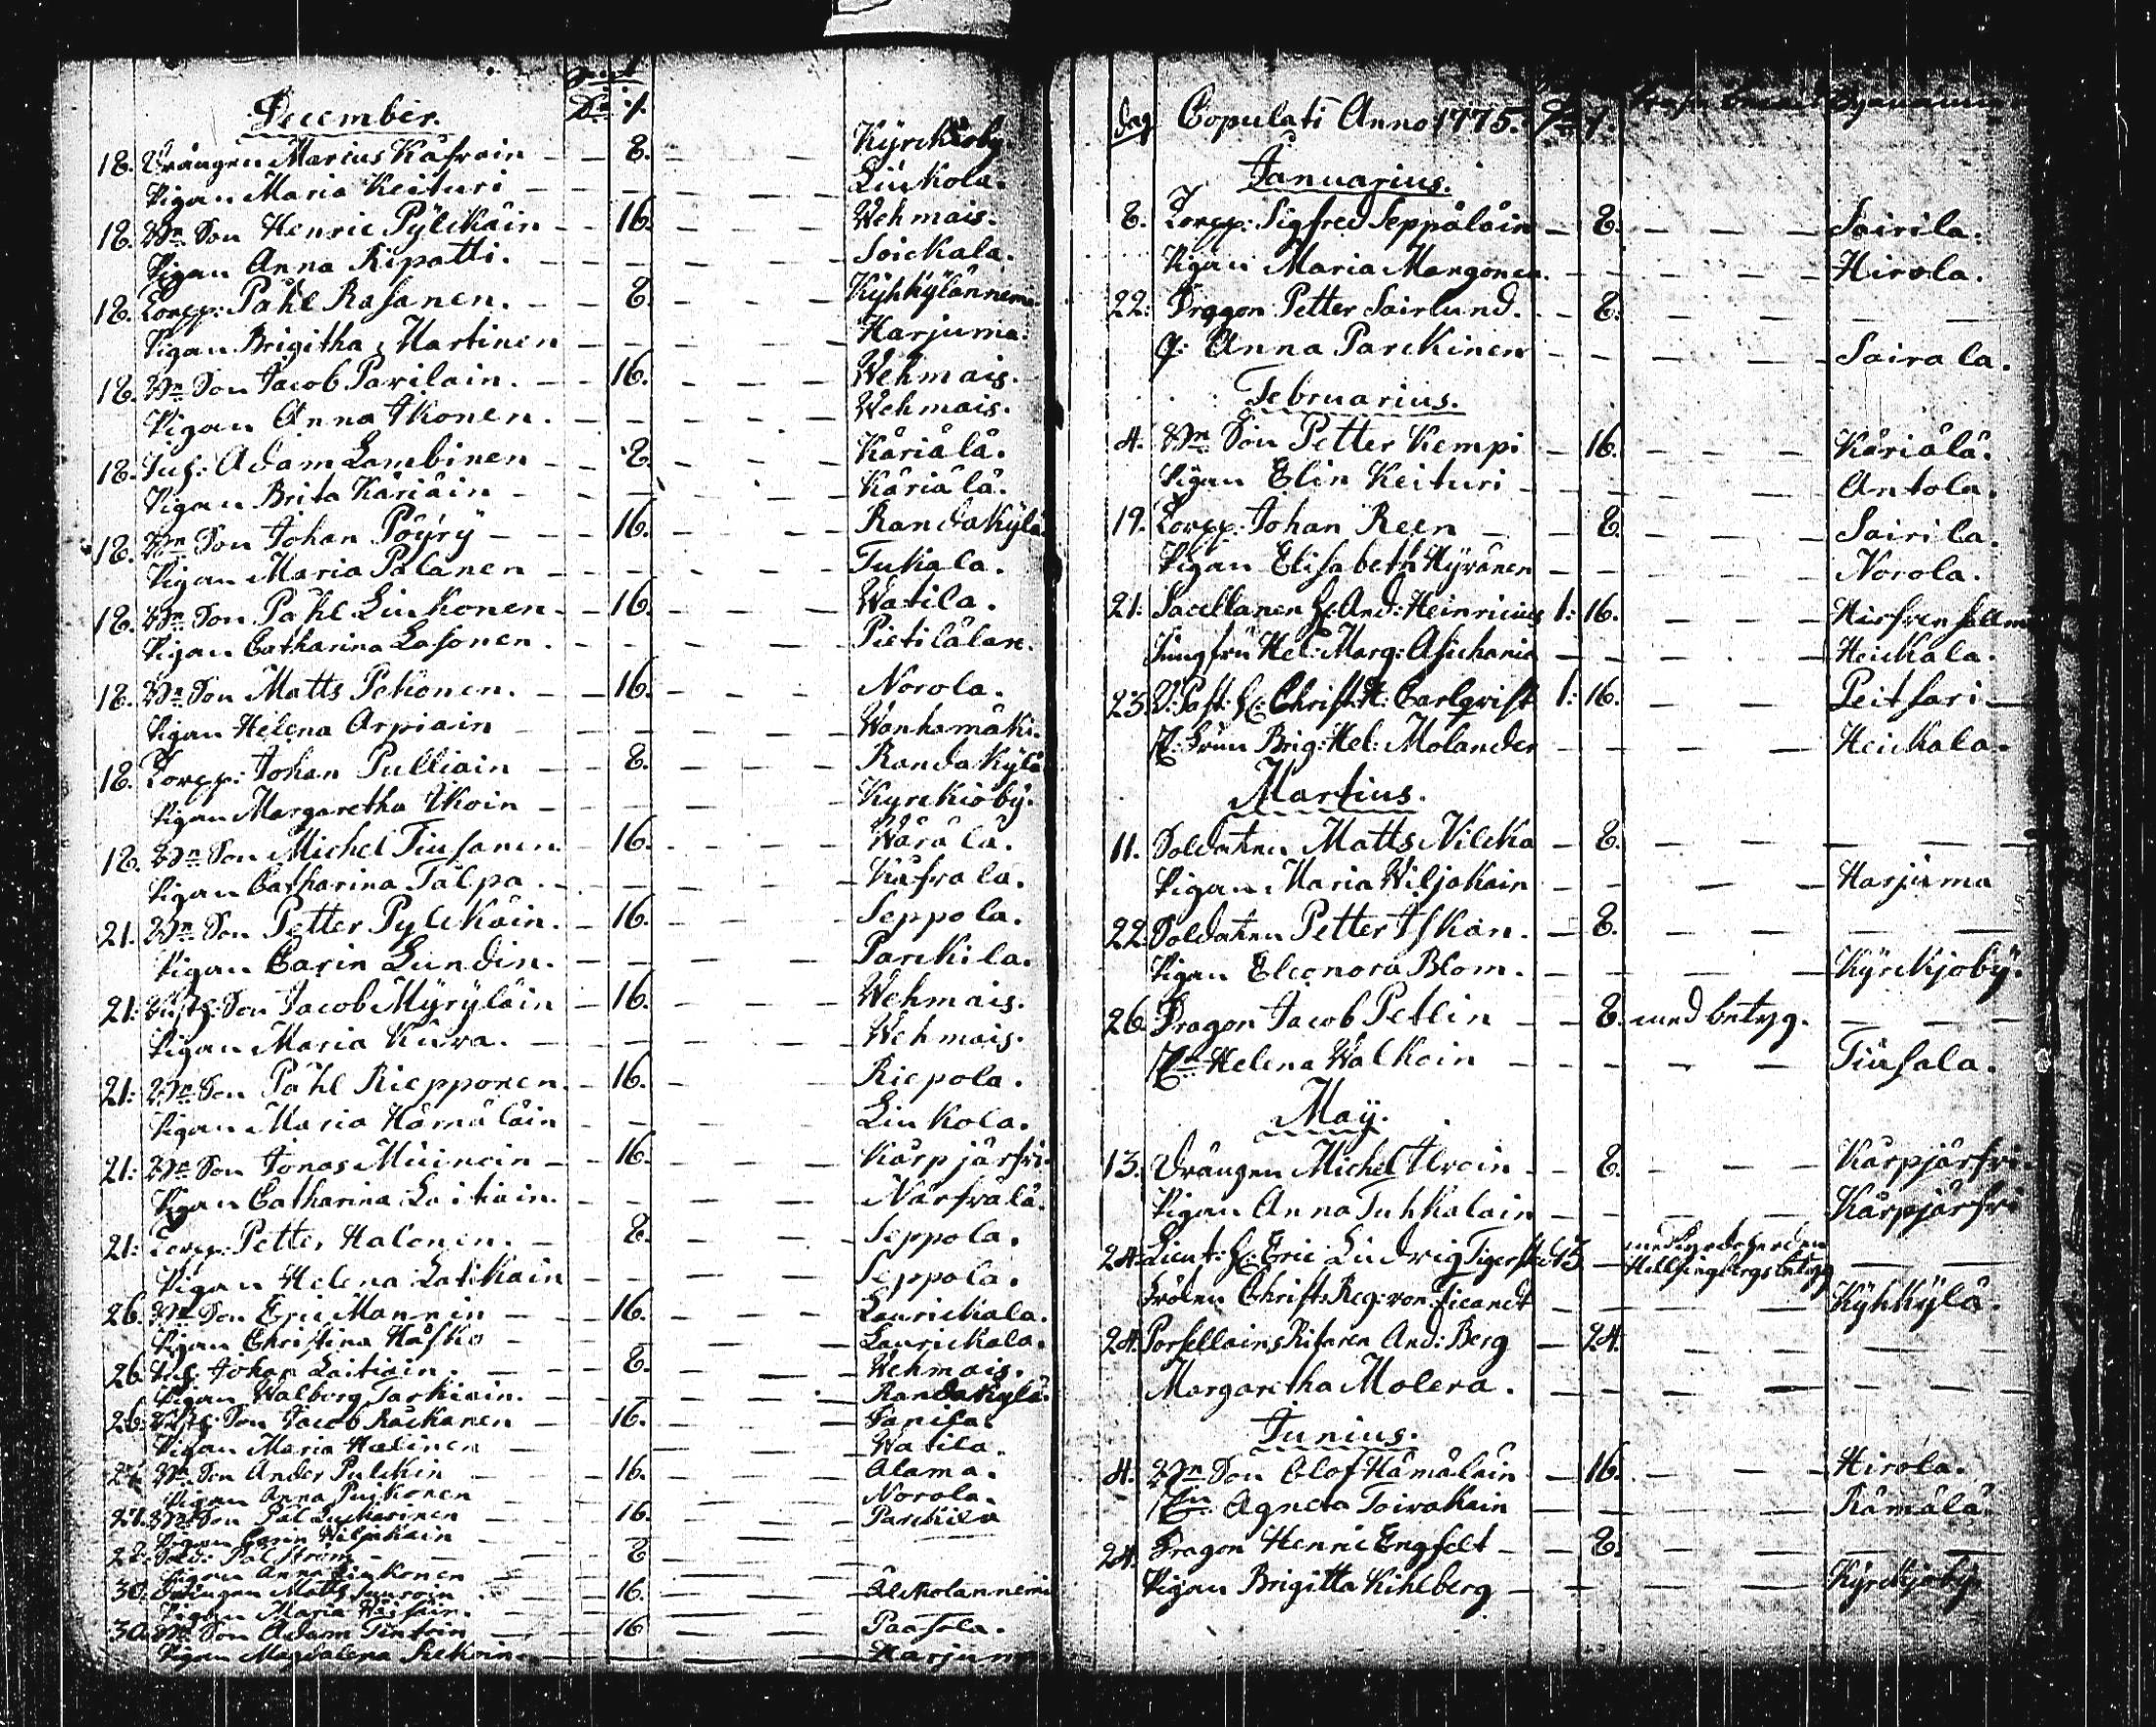 December.
18. Drängen Marcus Käfwain 8. Kyrckioby.
Pigan Maria Keituri Liukola.
18. Bn Son Henric Pylckäin 16. Wehmais.
Pigan Anna Ripatti. Soickala.
18. Torpp: Påhl Rasanen. 8. Kyhkylänneme
Pigan Brigitha Martinen Harjuma.
18. Bn Son Jacob Parilain. 16. Wehmais.
Pigan Anna Ikonen. Wehmais.
18. Inh: Adam Lambinen 8. Käriälä.
Pigan Brita Käriäin Käriälä.
18. Bn Son Johan Pöyry 16. Randakylä
Pigan Maria Palanen Tukala.
18. Bn Son Påhl Liukonen 16. Watila.
Pigan Catharina Lasonen. Pietilälax.
18. Bn Son Matts Pekonen. 16. Norola.
Pigan Helena Arpiain Wanhamäki.
18. Torpp: Johan Pulliain 8. Randakylä
Pigan Margaretha Ikoin Kyrckioby.
18. Bn Son Michel Tiusanen. 16. Wärälä.
Pigan Catharina Talpa. Käfrala.
21. Bn Son Petter Pylckäin. 16. Seppola.
Pigan Carin Lundin. Parckila.
21: Son Jacob Myryläin 16. Wehmais.
Pigan Maria Kura. Wehmais.
21: Bn Son Påhl Riepponen. 16. Riepola.
Pigan Maria Hämäläin Liukola.
21: Bn Son Jonas Muinoin 16. Kärpjärfvi.
Pigan Catharina Laitiain. Närfvälä.
21: Torpp: Petter Halonen. 8. Seppola.
Pigan Helena Latikain Seppola.
26. Bn Son Eric Mannin 16. Laurickala.
Pigan Christina Hasko Laurickala.
26 Inh: Johan Laitiain. 8. Wehmais.
Pigan Walborg Tarkiain. Randakylä.
26: Son Jacob Räickänen 16. Tanila.
Pigan Maria Halinen Watila.
27. Bn Son Ander Pulckin 16. Alama.
Pigan Anna Puikonen Norola.
27. Bn Son Pål 16. Parckila
Pigan Carin Wiljakain
Sold: Pål Ström 8
Pigan Anna Liukonen
30. Drängen Matts 16.
Pigan Maria
30. Bn Son Adam Tintoin 16 Paasola.
Pigan Magdalena Harjuma
dag Copulati Anno 1775. Bynamnen
Januarius.
8. Torpp: Sigfred Seppäläin 8. Sairila.
Pigan Maria Mangonen. Hirola.
22: Dragon Petter Sairlund. 8.
q: Anna Parckinen Sairala.
Februarius.
4. Bn Son Petter Kempi 16. Käriälä.
Pigan Elin Keituri Antola.
19. Torpp: Johan Reen 8. Sairila.
Pigan Elisabeth Hyvänen Norola.
21: Sacellanen H: And: Heinricius 1: 16. Hirfvensallm
Jungfru Hel: Marg: Asichania Heickala.
23. V: Past: H: Christ: H: Carlqvist 1: 16. Peitsari
Brig: Hel: Molander Heickala.
Martius.
11. Soldaten Matts Vilcka 8.
Pigan Maria Wiljakain Harjuma
22. Soldaten Petter Iskan. 8.
Pigan Eleonora Blom. Kyrckjoby.
26 Dragon Jacob Petlin 8. med betyg.
Helena Walkoin Tiusala.
May.
13. Drängen Michel Alroin 8. Kärpjärfvi
Pigan Anna Tuhkalain Kärpjärfvi
24. Lieut: H: Eric Ludvig Tigerstedt 5. med
Helsingborgs betyg
Fröken Christ: Reg: von Fieandt Kyhkylä.
24. Porsellains Ritaren And: Berg 24.
Margaretha Molera.
Junius.
4. Bn Son Olof Hämäläin 16. Hirola.
Agneta Toivakain Rämälä.
24. Dragon Henric Engfelt 8.
Pigan Brigitta Kihlberg Kyrckjoby.